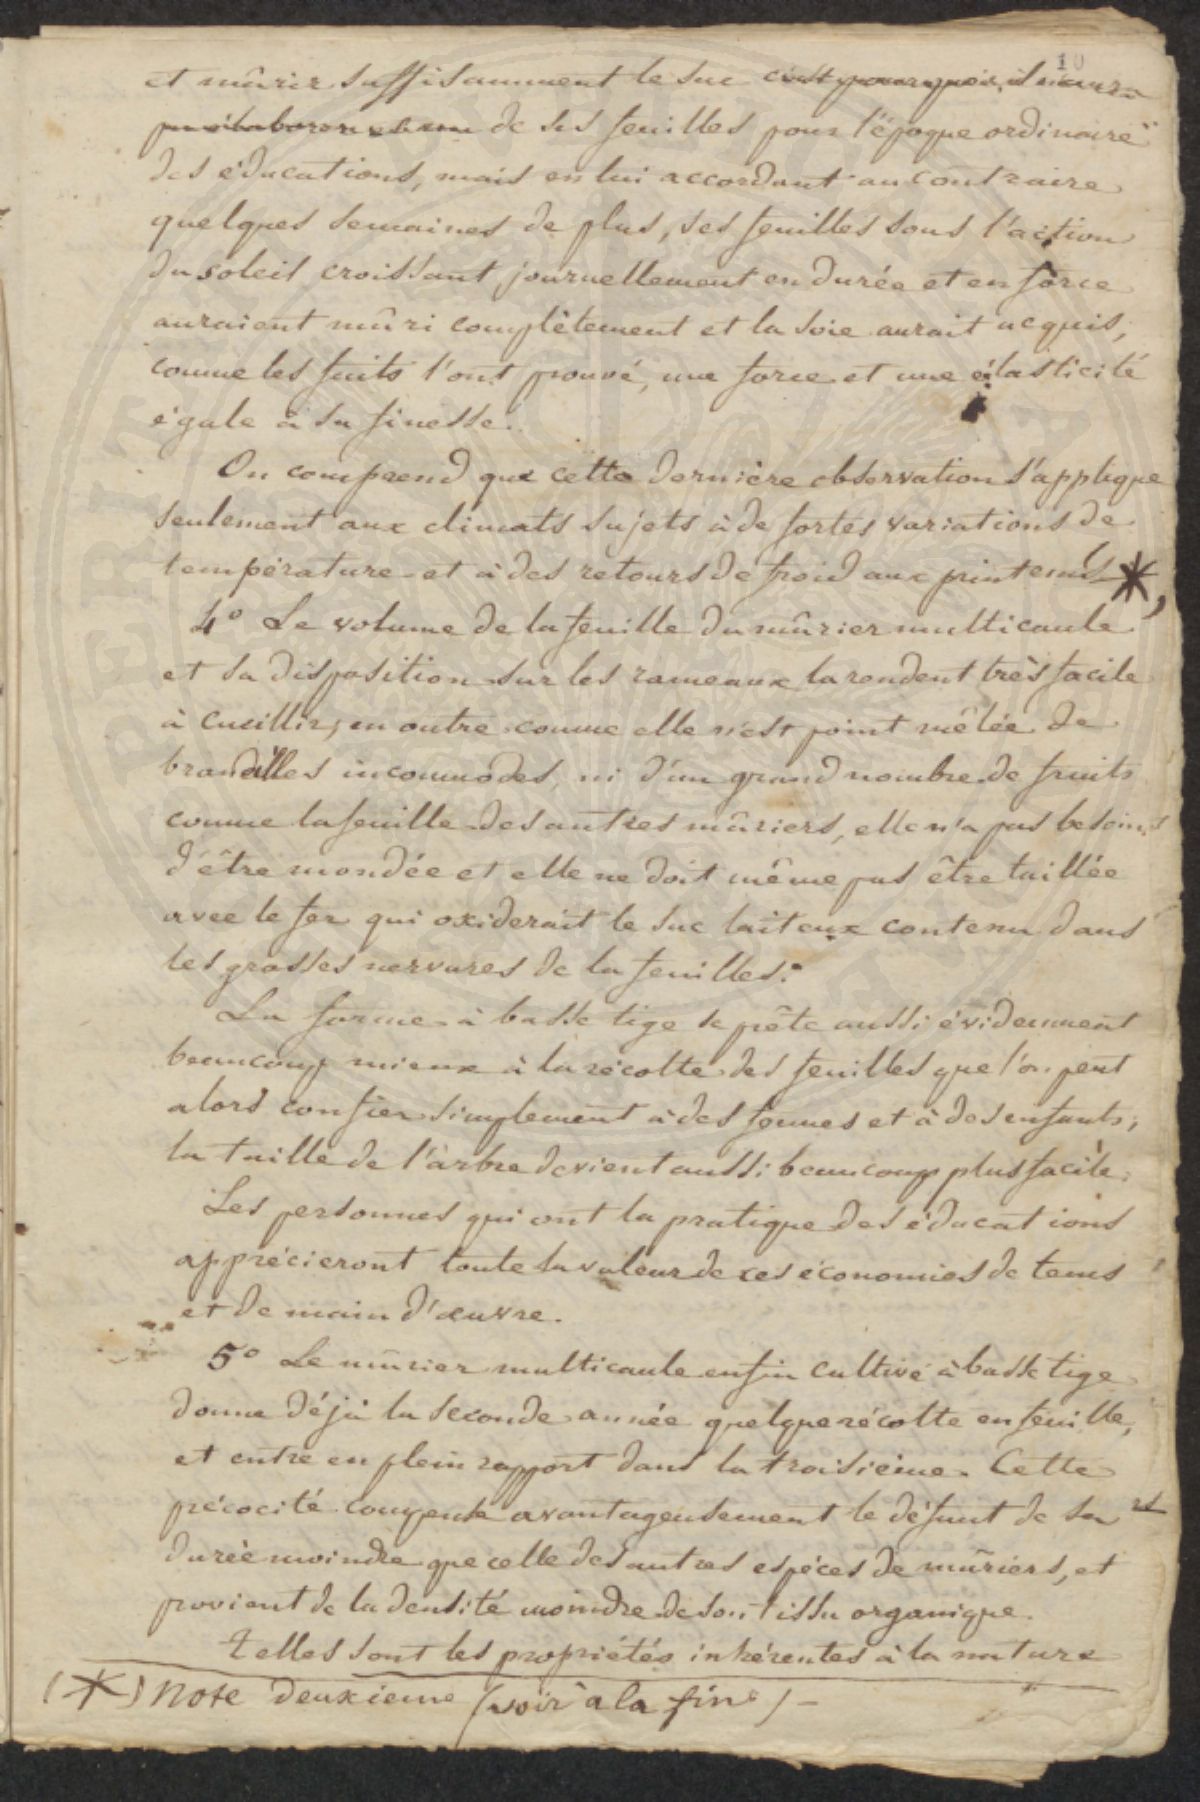 10
et mûrir suffisamment le suc c'est pourquoi, il n'aura
pu élaborer de ses feuilles pour l'époque ordinaire
des éducations, mais en lui accordant au contraire
quelques semaines de plus, ses feuilles sous l'action
du soleil croissant journellement en durée et en force
auraient mûri complètement et la soie aurait acquis,
comme les faits l'ont prouvé, une force et une élasticité
égale à sa finesse.
On comprend que cette dernière observation s'applique
seulement aux climats sujets à de fortes variations de
température et à des retours de froid aux printems *,
4° Le volume de la feuille du mûrier multicaule
et sa disposition sur les rameaux la rendent très facile
à cueillir, en outre comme elle n'est point mêlée de
brandilles incommodes, ni d'un grand nombre de fruits
comme la feuille des autres mûriers, elle n'a pas besoin
d'être mondée et elle ne doit même pas être taillée
avec le fer qui oxiderait le suc laiteux contenu dans
les grosses nervures de la feuilles.
La forme à basse tige se prête aussi évidemment
beaucoup mieux à la récolte des feuilles que l'on peut
alors confier simplement à des femmes et à des enfants;
la taille de l'arbre devient aussi beaucoup plus facile.
Les personnes qui ont la pratique des éducations
apprécieront toute la valeur de ces économies de tems
et de main d'œuvre.
5° Le mûrier multicaule enfin cultivé à basse tige
donne déjà la seconde année quelque récolte en feuille,
et entre en plein rapport dans la troisième. Cette
précocité compense avantageusement le défaut de sa
durée moindre que celle des autres espèces de mûriers, et
provient de la densité moindre de son tissu organique.
Telles sont les propriétés inhérentes à la nature
(*) Note deuxieme (voir à la fin) –